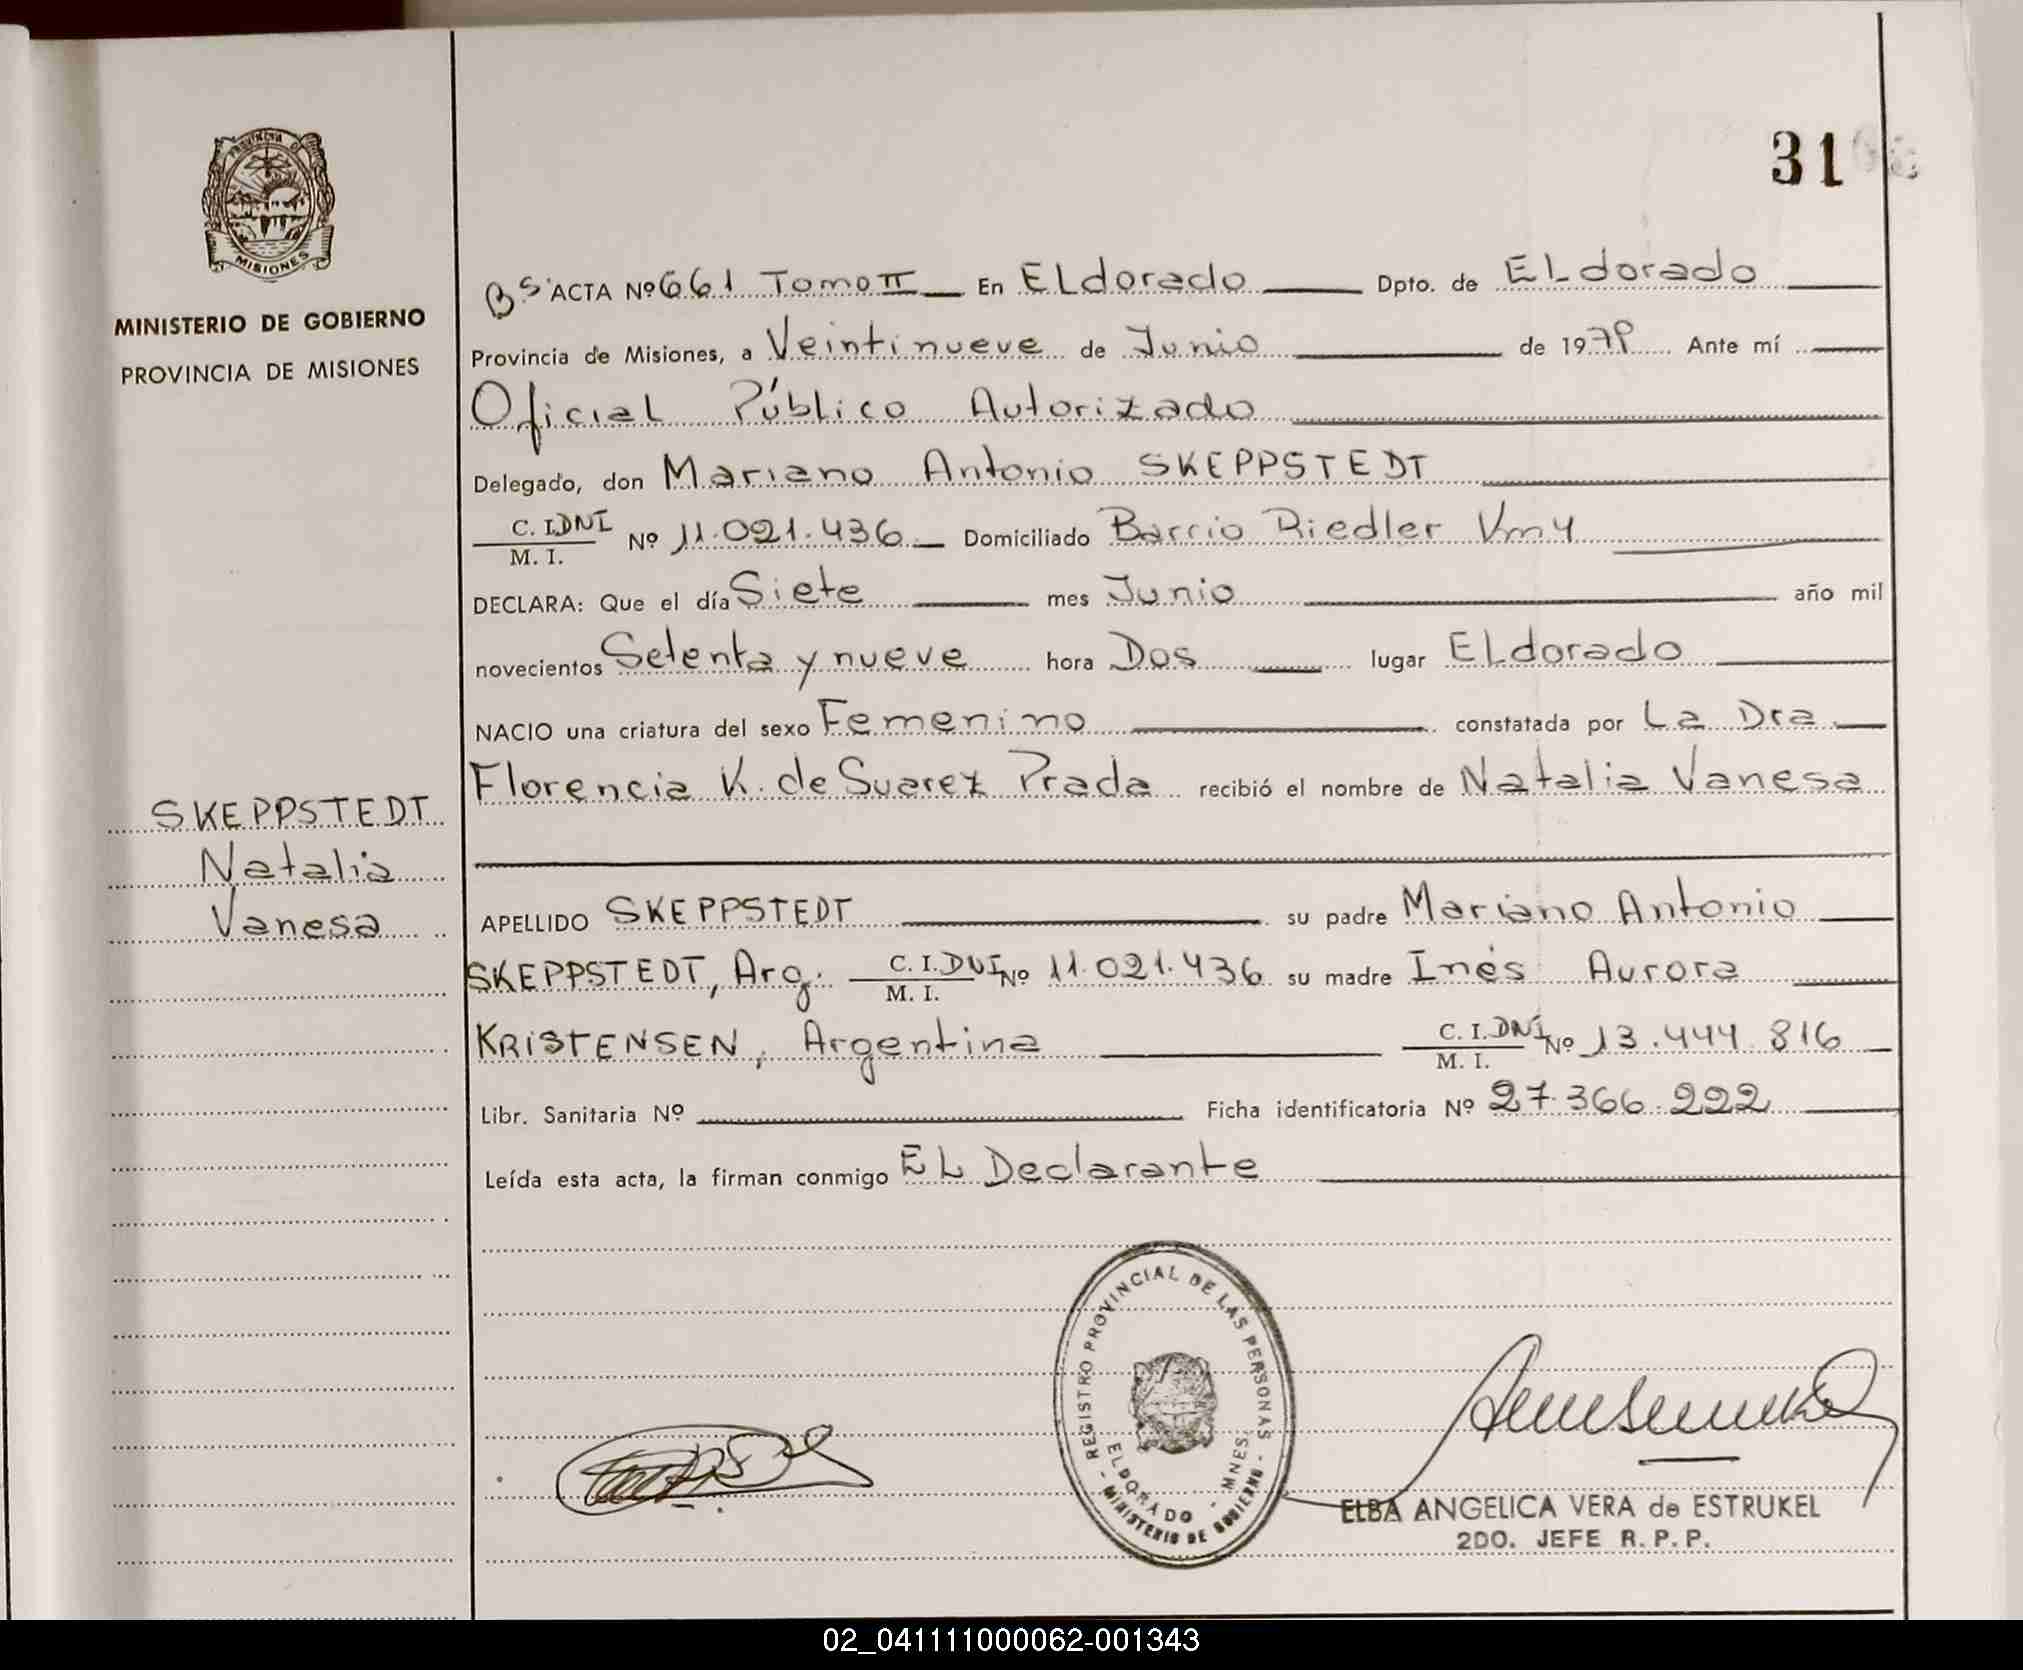 31
PROVINCIA DE
MISIONES
MINISTERIO DE GOBIERNO
PROVINCIA DE MISIONES
SKEPPSTEDT
Natalia
Vanesa
Bs ACTA Nº 661 Tomo II En ELdorado Dpto. de ELdorado
Provincia de Misiones, a Veintinueve de Junio de 1979 Ante mí
Oficial Público Autorizado
Delegado, don Mariano Antonio SKEPPSTEDT
C. I. DNI
M. I. Nº 11.021.436 Domiciliado Barrio Riedler Km4
DECLARA: Que el día Siete mes Junio año mil
novecientos Setenta y nueve hora Dos lugar ELdorado
NACIO una criatura del sexo Femenino constatada por La Dra
Florencia K. de Suarez Prada recibió el nombre de Natalia Vanesa
APELLIDO SKEPPSTEDT su padre Mariano Antonio
SKEPPSTEDT, Arg. C. I. DNI M. I. Nº 11.021.436 su madre Inés Aurora
KRISTENSEN, Argentina C. I. DNI M. I. Nº 13.444.816
Libr. Sanitaria Nº Ficha identificatoria Nº 27.366.222
Leída esta acta, la firman conmigo EL Declarante
REGISTRO PROVINCIAL DE LAS PERSONAS
ELDORADO - MNES.
- MINISTERIO DE GOBIERNO -
ELBA ANGELICA VERA de ESTRUKEL
2DO. JEFE R. P. P.
02_041111000062-001343